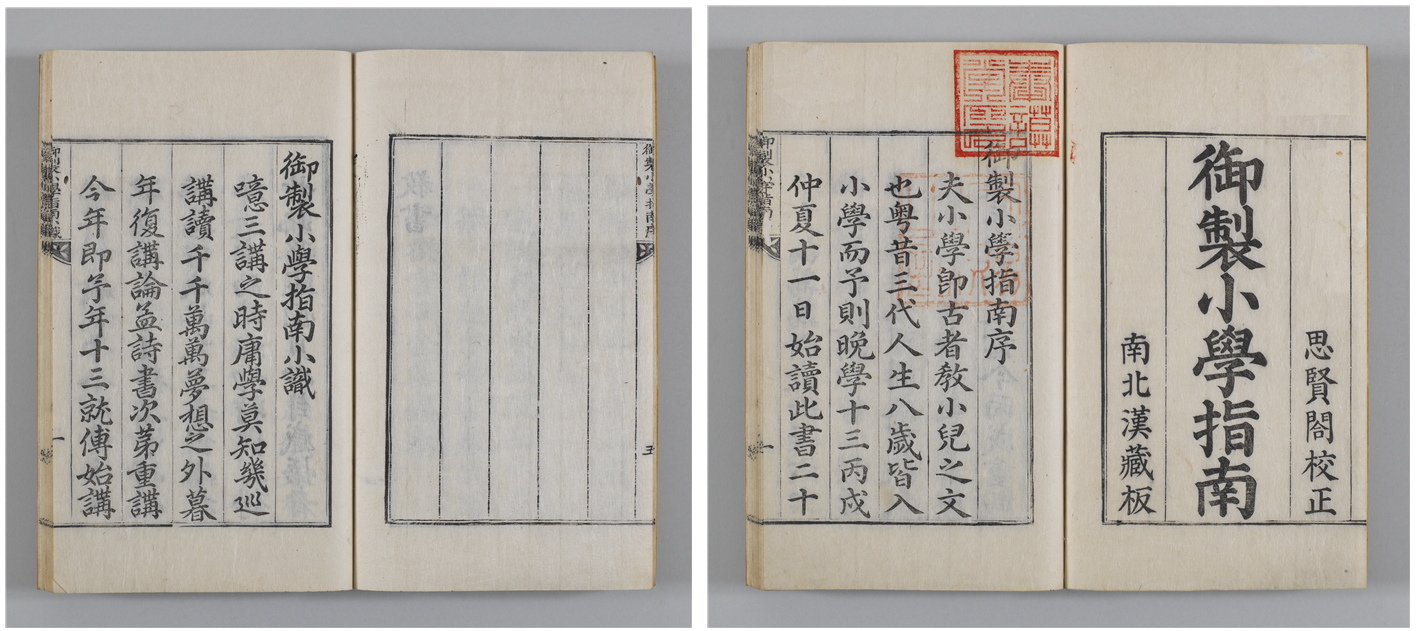 思賢閤校正
御製小學指南
南北漢藏板
御製小學指南序
夫小學卽古者敎小兒之文
也粤昔三代人生八歲皆入
小學而予則晚學十三丙戌
仲夏十一日始讀此書二十
一
御製小學指南序
五
御製小學指南小識
噫三講之時庸學莫知幾巡
講讀千千萬萬夢想之外暮
年復講論孟詩書次第重講
今年卽予年十三就傅始講
御製小學指南小識
一